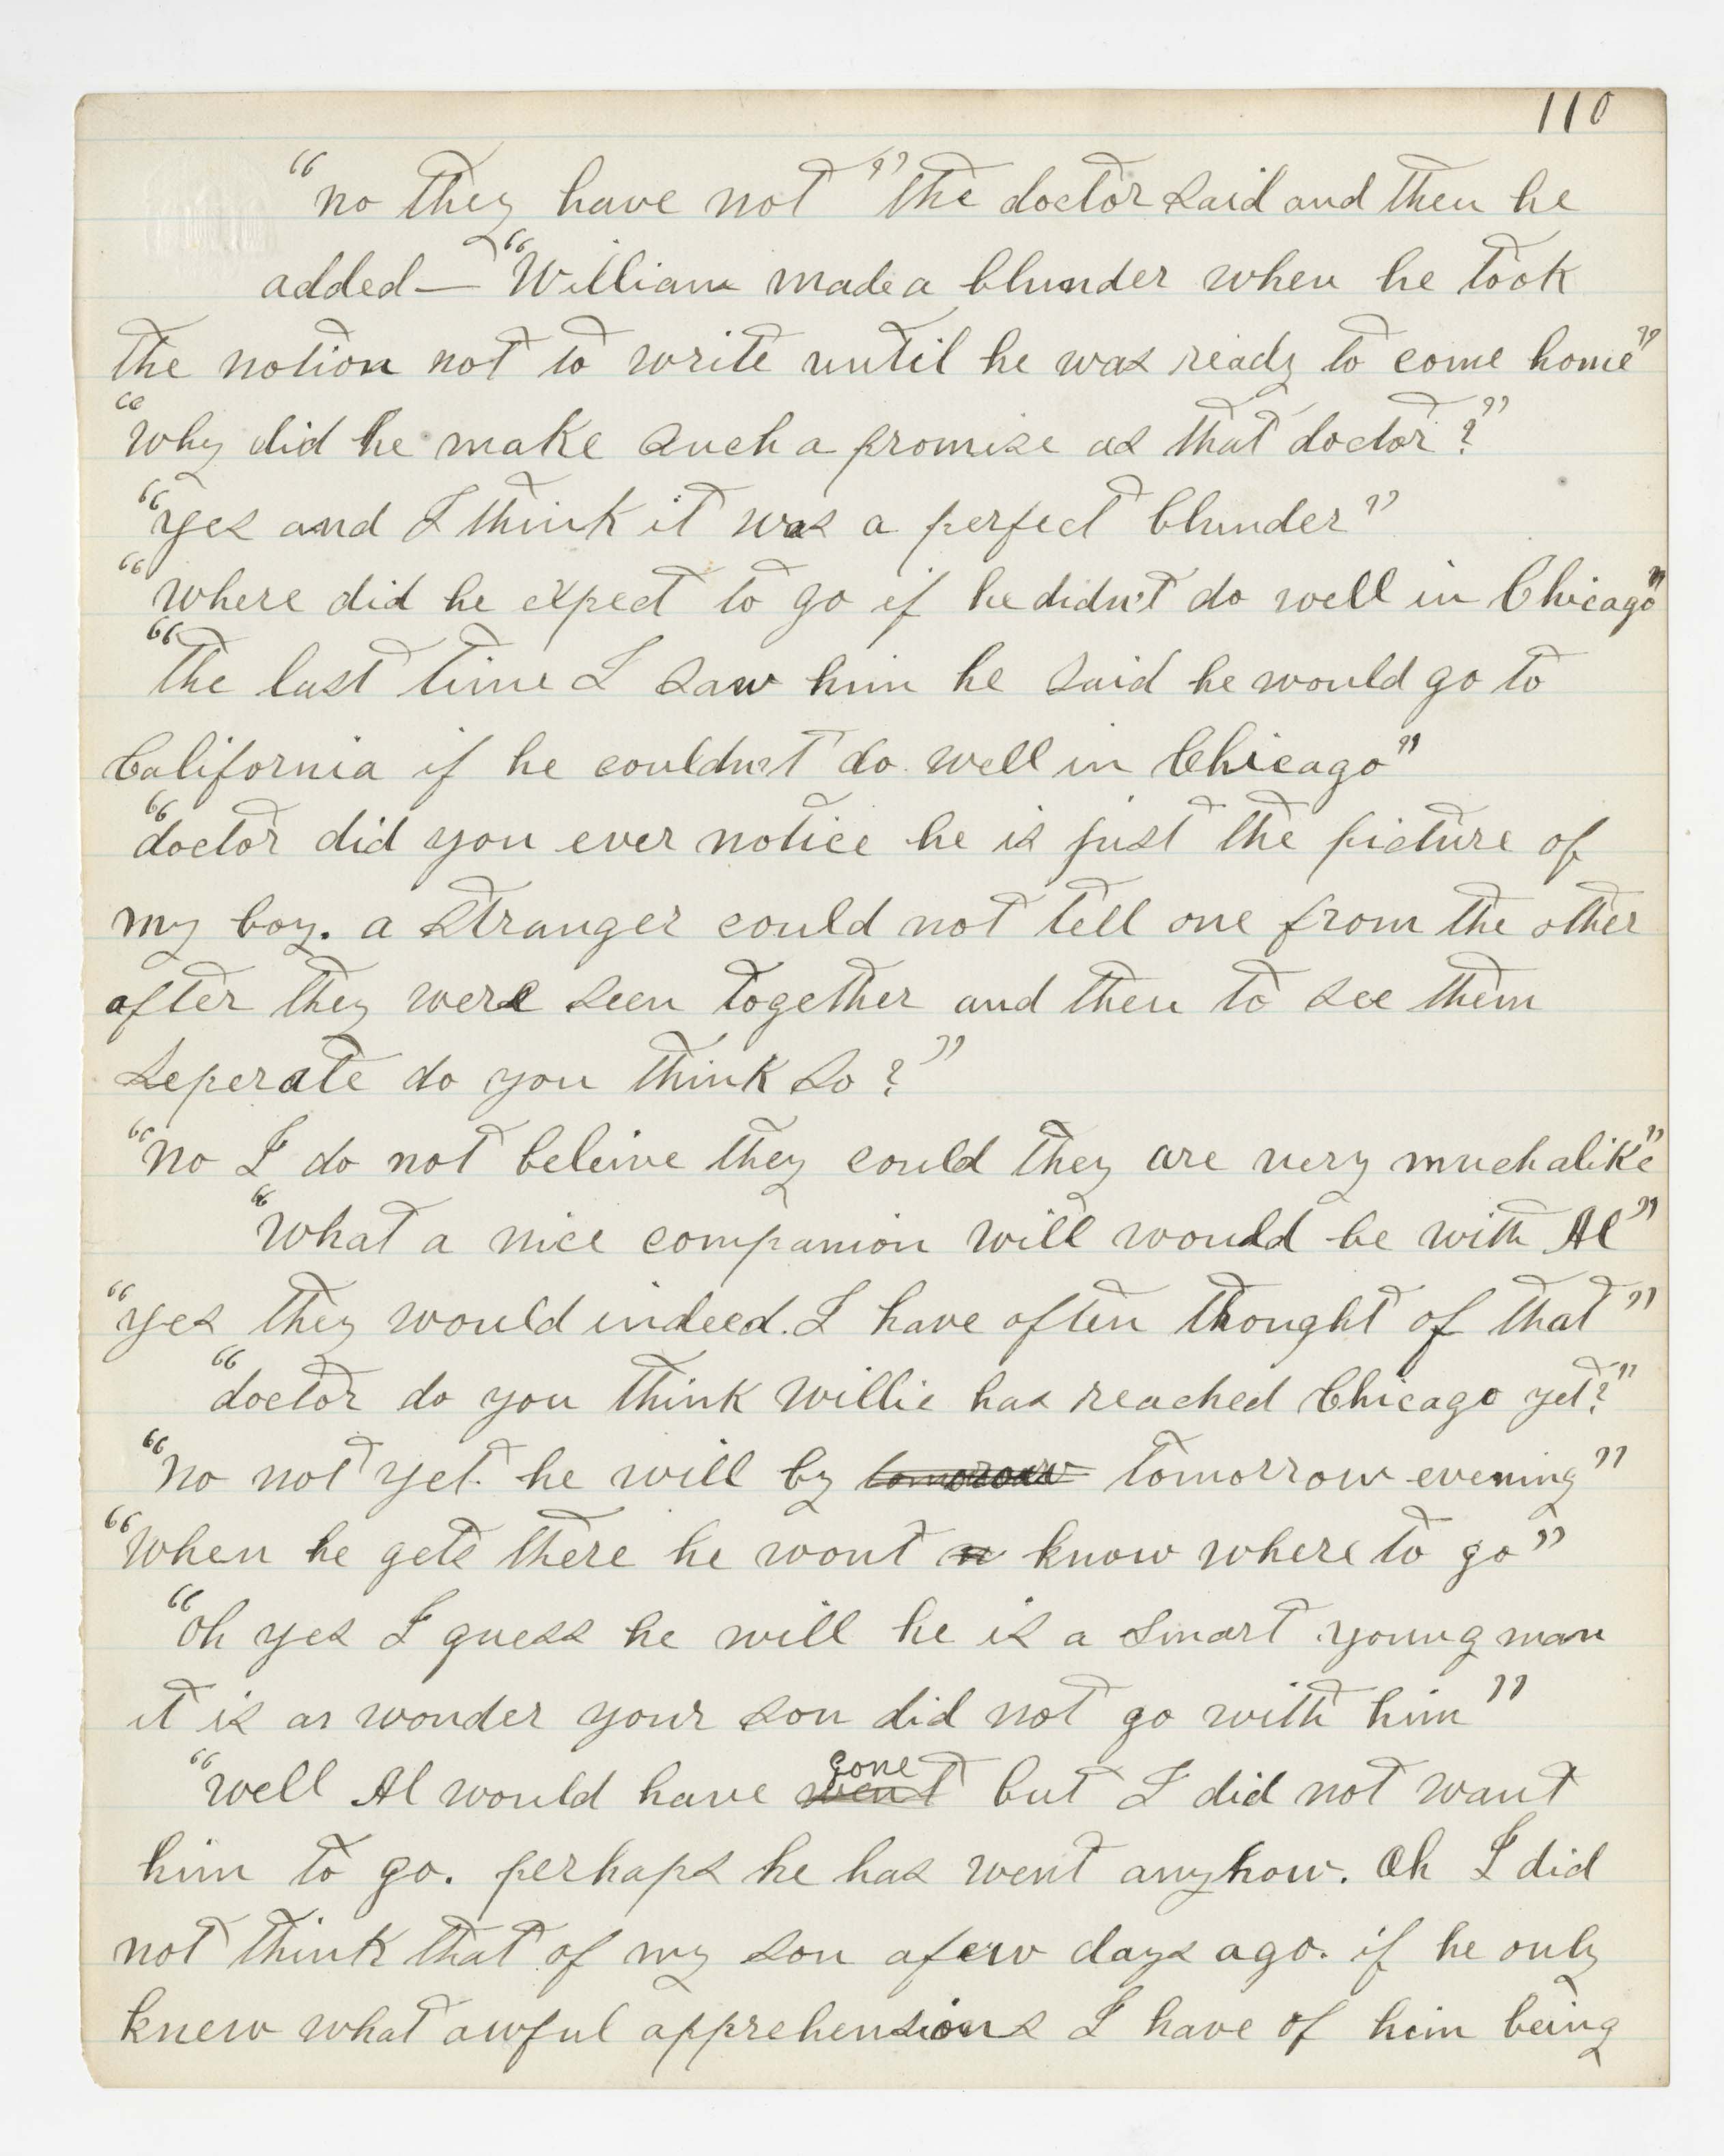 110
"no they have not" the doctor said and then he
added — "William made a blunder when he took
the notion not to write until he was ready to come home"
"why did he make such a promise as that doctor?"
"yes and I think it was a perfect blunder"
"where did he expect to go if he didn't do well in Chicago"
"the last time I saw him he said he would go to
California if he couldn't do well in Chicago"
"doctor did you ever notice he is just the picture of
my boy. a stranger could not tell one from the other
after they were seen together and then to see them
seperate do you think so?"
"no I do not beleive they could they are very much alike"
"what a nice companion will would be with Al"
"yes they would indeed. I have often thought of that"
"doctor do you think Willie has reached Chicago yet?"
"no not yet. he will by tomorow tomorrow evening"
"When he gets there he wont n know where to go"
"oh yes I guess he will he is a smart young man
it is an wonder your son did not go with him"
"well Al would have went gone but I did not want
him to go. perhaps he has went anyhow. Oh I did
not think that of my son a few days ago. if he only
knew what awful apprehensions I have of him being